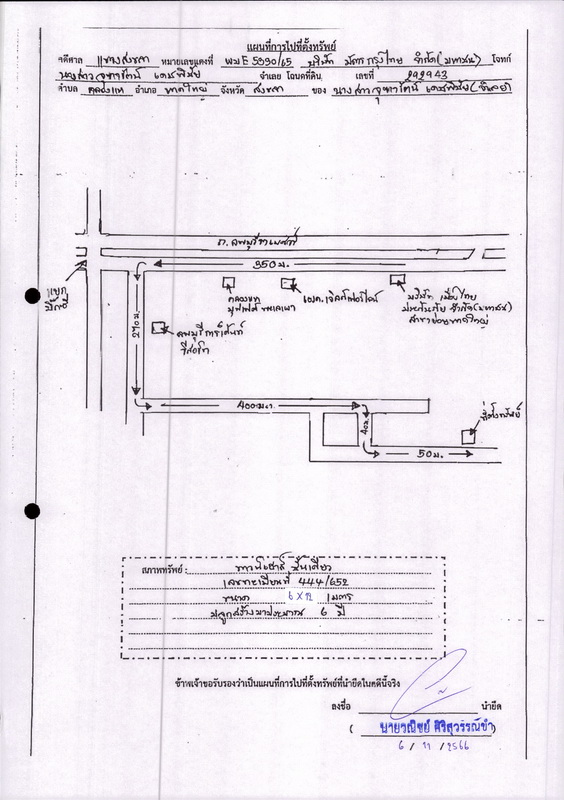 แผนที่การไปที่ตั้งทรัพย์
คดีศาล แขวงสงขลา หมายเลขแดงที่ ผบE 5990/65 บริษัท บัตรกรุงไทย จำกัด(มหาชน) โจทก์
นางสาวจุฑารัตน์ เดชพินัย จำเลย โฉนดที่ดิน เลขที่ 292943
ตำบล คลองแห อำเภอ หาดใหญ่ จังหวัด สงขลา ของ นางสาวจุฑารัตน์ เดชพินัย(จำเลย)
ถ. ลพบุรีราเมศวร์
350 ม.
แยก
คลองแห
บริษัท เมืองไทย
ประกันภัย จำกัด(มหาชน)
สาขาย่อยหาดใหญ่
270 ม.
ลพบุรี การ์เด้นท์
รีสอร์ท
400 ม.
40 ม.
ที่ตั้งทรัพย์
50 ม.
สภาพทรัพย์ : ทาวน์เฮาส์ ชั้นเดียว
เลขทะเบียนที่ 444/652
ขนาด 6 x 12 เมตร
ปลูกสร้างมาประมาณ 6 ปี
ข้าพเจ้าขอรับรองว่าเป็นแผนที่การไปที่ตั้งทรัพย์ที่นำยึดในคดีนี้จริง
ลงชื่อ นำยึด
( นายวณิชย์ ศิริสุวรรณขำ )
6 / 11 / 2566